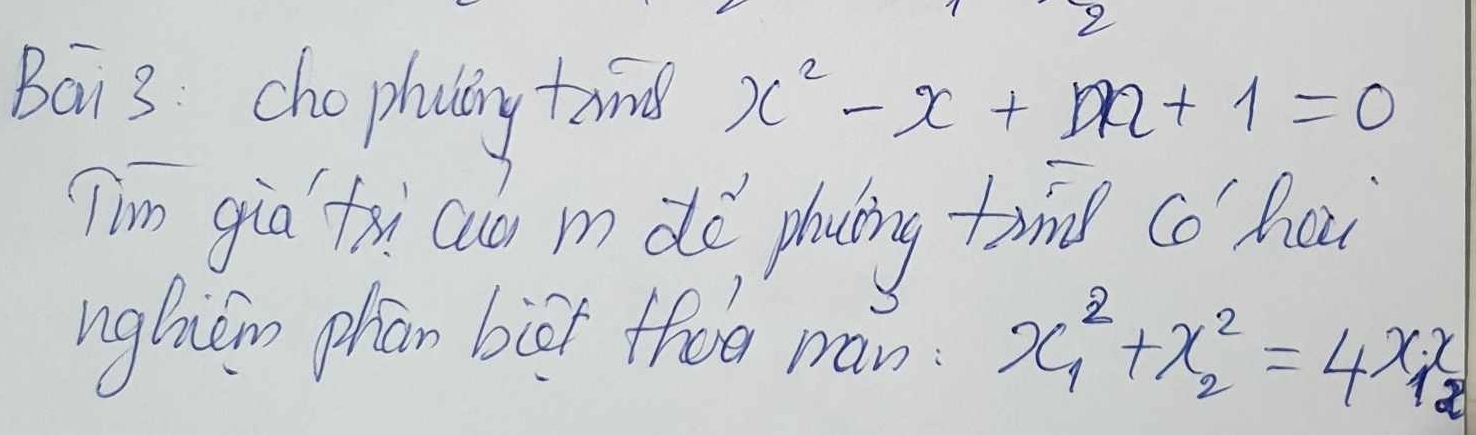 2
Bài 3: cho phương trình x² - x + m + 1 = 0
Tìm giá trị của m để phương trình có hai
nghiệm phân biệt thỏa mãn: x₁² + x₂² = 4x₁.x₂